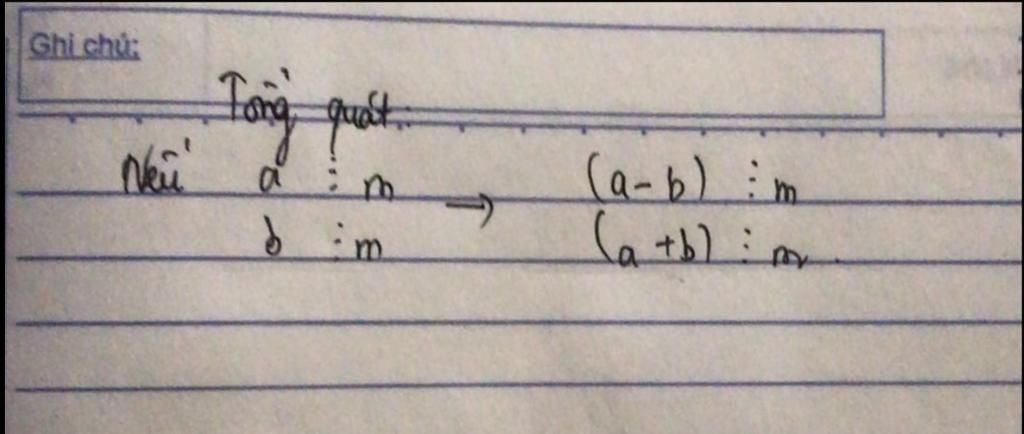 Ghi chú:
Tổng quát:
Nếu a ⋮ m → (a - b) ⋮ m
b ⋮ m (a + b) ⋮ m.